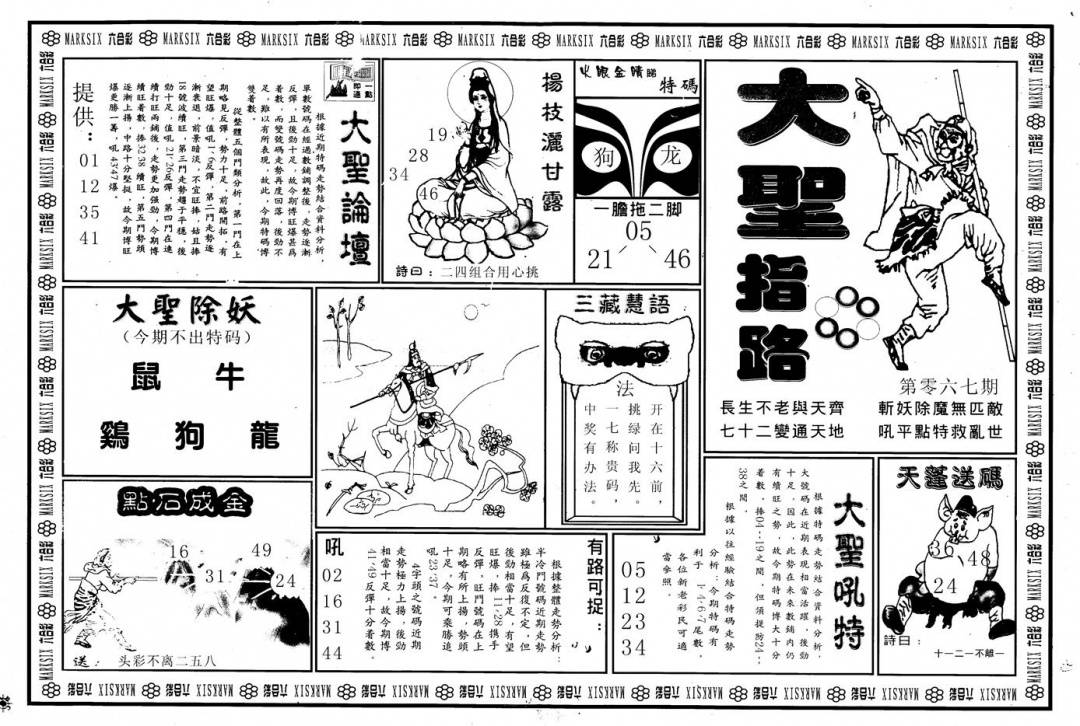 MARKSIX 六合彩 MARKSIX 六合彩 MARKSIX 六合彩 MARKSIX 六合彩 MARKSIX 六合彩 MARKSIX 六合彩 MARKSIX 六合彩
大聖指路
第零六七期
長生不老與天齊
七十二變通天地
斬妖除魔無匹敵
吼平點特救亂世
火眼金睛睇
特碼
狗
龙
一膽拖二脚
05
21
46
楊枝灑甘露
19
28
34
46
詩曰：二四組合用心挑
一點即通
大聖論壇
根據近期特碼走勢結合資料分析，
單數號碼在經過數鋪調整後，走勢逐漸
反彈，且後勁十足，故今期博旺爆甚爲
着數，而變號碼走勢再度回落，後勁不
足，雖以有所表現，故此，今期特碼博
雙着數。
從整體五個門類分析，第一門在上
期略見反彈，勢力十足，前路開拓，有
望旺爆，值吼
反彈，第二門走勢逐
漸衰退，前景暗淡，不宜旺捧，姑且捧
18號波續旺，第三門走勢趨于平穩，後
勁十足，值吼21·26反彈，第四門在連
續打旺兩鋪後，走勢更加强勁，今期博
續旺着數，捧32·38續旺，第五門勢頭
逐漸上揚，中路十分堅挺，故今期博旺
爆更勝一籌，吼43·47爆。
提供：
01
12
35
41
大聖除妖
（今期不出特码）
鼠 牛
鷄 狗 龍
三藏慧語
法
开在十六前，
挑绿问我先。
一七称贵码，
中奖有办法。
點石成金
16
49
31
24
送：头彩不离二五八
有路可捉：
根據整體走勢分析：
半冷門號碼近期走勢
雖極爲反復不定，但
後勁相當十足，有望
旺爆，捧11·28携手
反彈，旺門號碼在上
期略有所上揚，勢頭
十足，今期可乘勝追
吼23·37
4字頭之號碼近期
走勢極力上揚，後勁
相當十足，故今期博
41·49反彈十分着數。
吼
02
16
31
44
大聖吼特
根據特碼走勢結合資料分析，
大號碼在近期表現相當活躍，後勁
十足，因此，此勢在未來數鋪内仍
有續旺之勢，故今期特碼博大十分
着數，捧04--19之間，但須提防24--
38之間。
根據以往經驗結合特碼走勢
分析：今期特碼有
利于1·4·6·7尾數，
各位新老彩民可適
當參照。
05
12
23
34
天蓬送碼
36
48
24
詩曰：
十一二一不離一